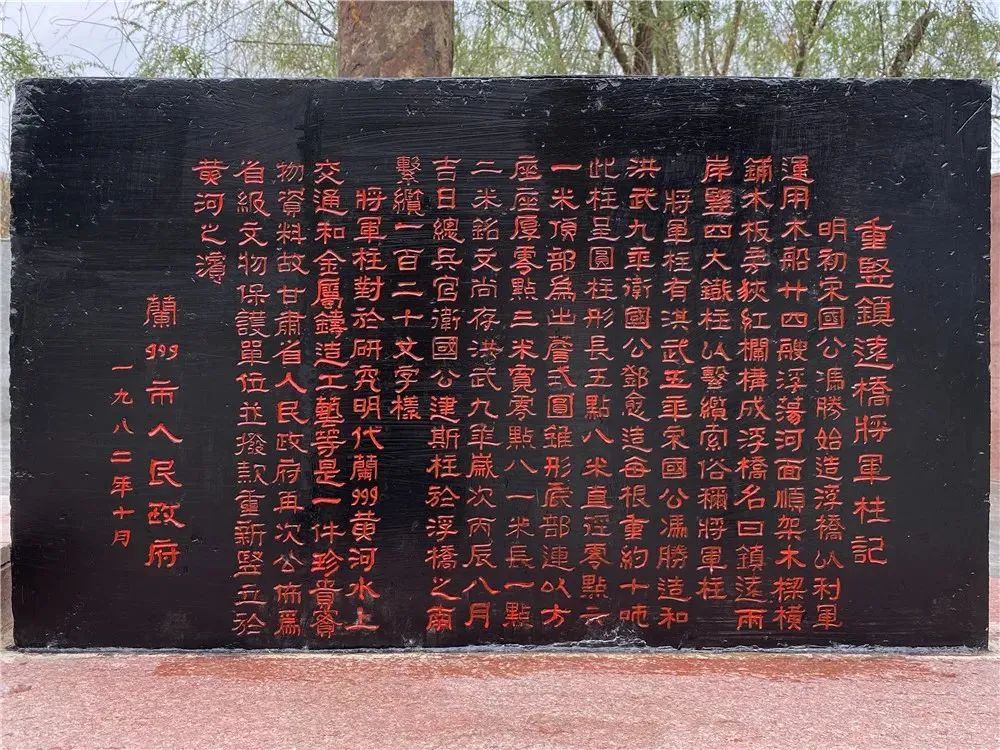 重竪鎮遠橋將軍柱記
明初宋國公馮勝始造浮橋以利軍
運用木船廿四艘浮蕩河面順架木樑橫
鋪木板夹紅欄構成浮橋名曰鎮遠兩
岸竪四大鐵柱以繫纜索俗稱將軍柱
將軍柱有洪武五年宋國公馮勝造和
洪武九年衛國公鄧愈造每根重約十吨
此柱呈圓柱形長五點八米直徑零點六
一米頂部為出簷式圓錐形底部連以方
座座厚零點三米寬零點八一米長一點
二米銘文尚存洪武九年歲次丙辰八月
吉日總兵官衛國公建斯柱於浮橋之南
繫纜一百二十丈字樣
將軍柱對於研究明代蘭州黃河水上
交通和金屬鑄造工藝等是一件珍貴實
物資料故甘肅省人民政府再次公佈為
省級文物保護單位並撥款重新竪立於
黃河之濱
蘭州市人民政府
一九八二年十月